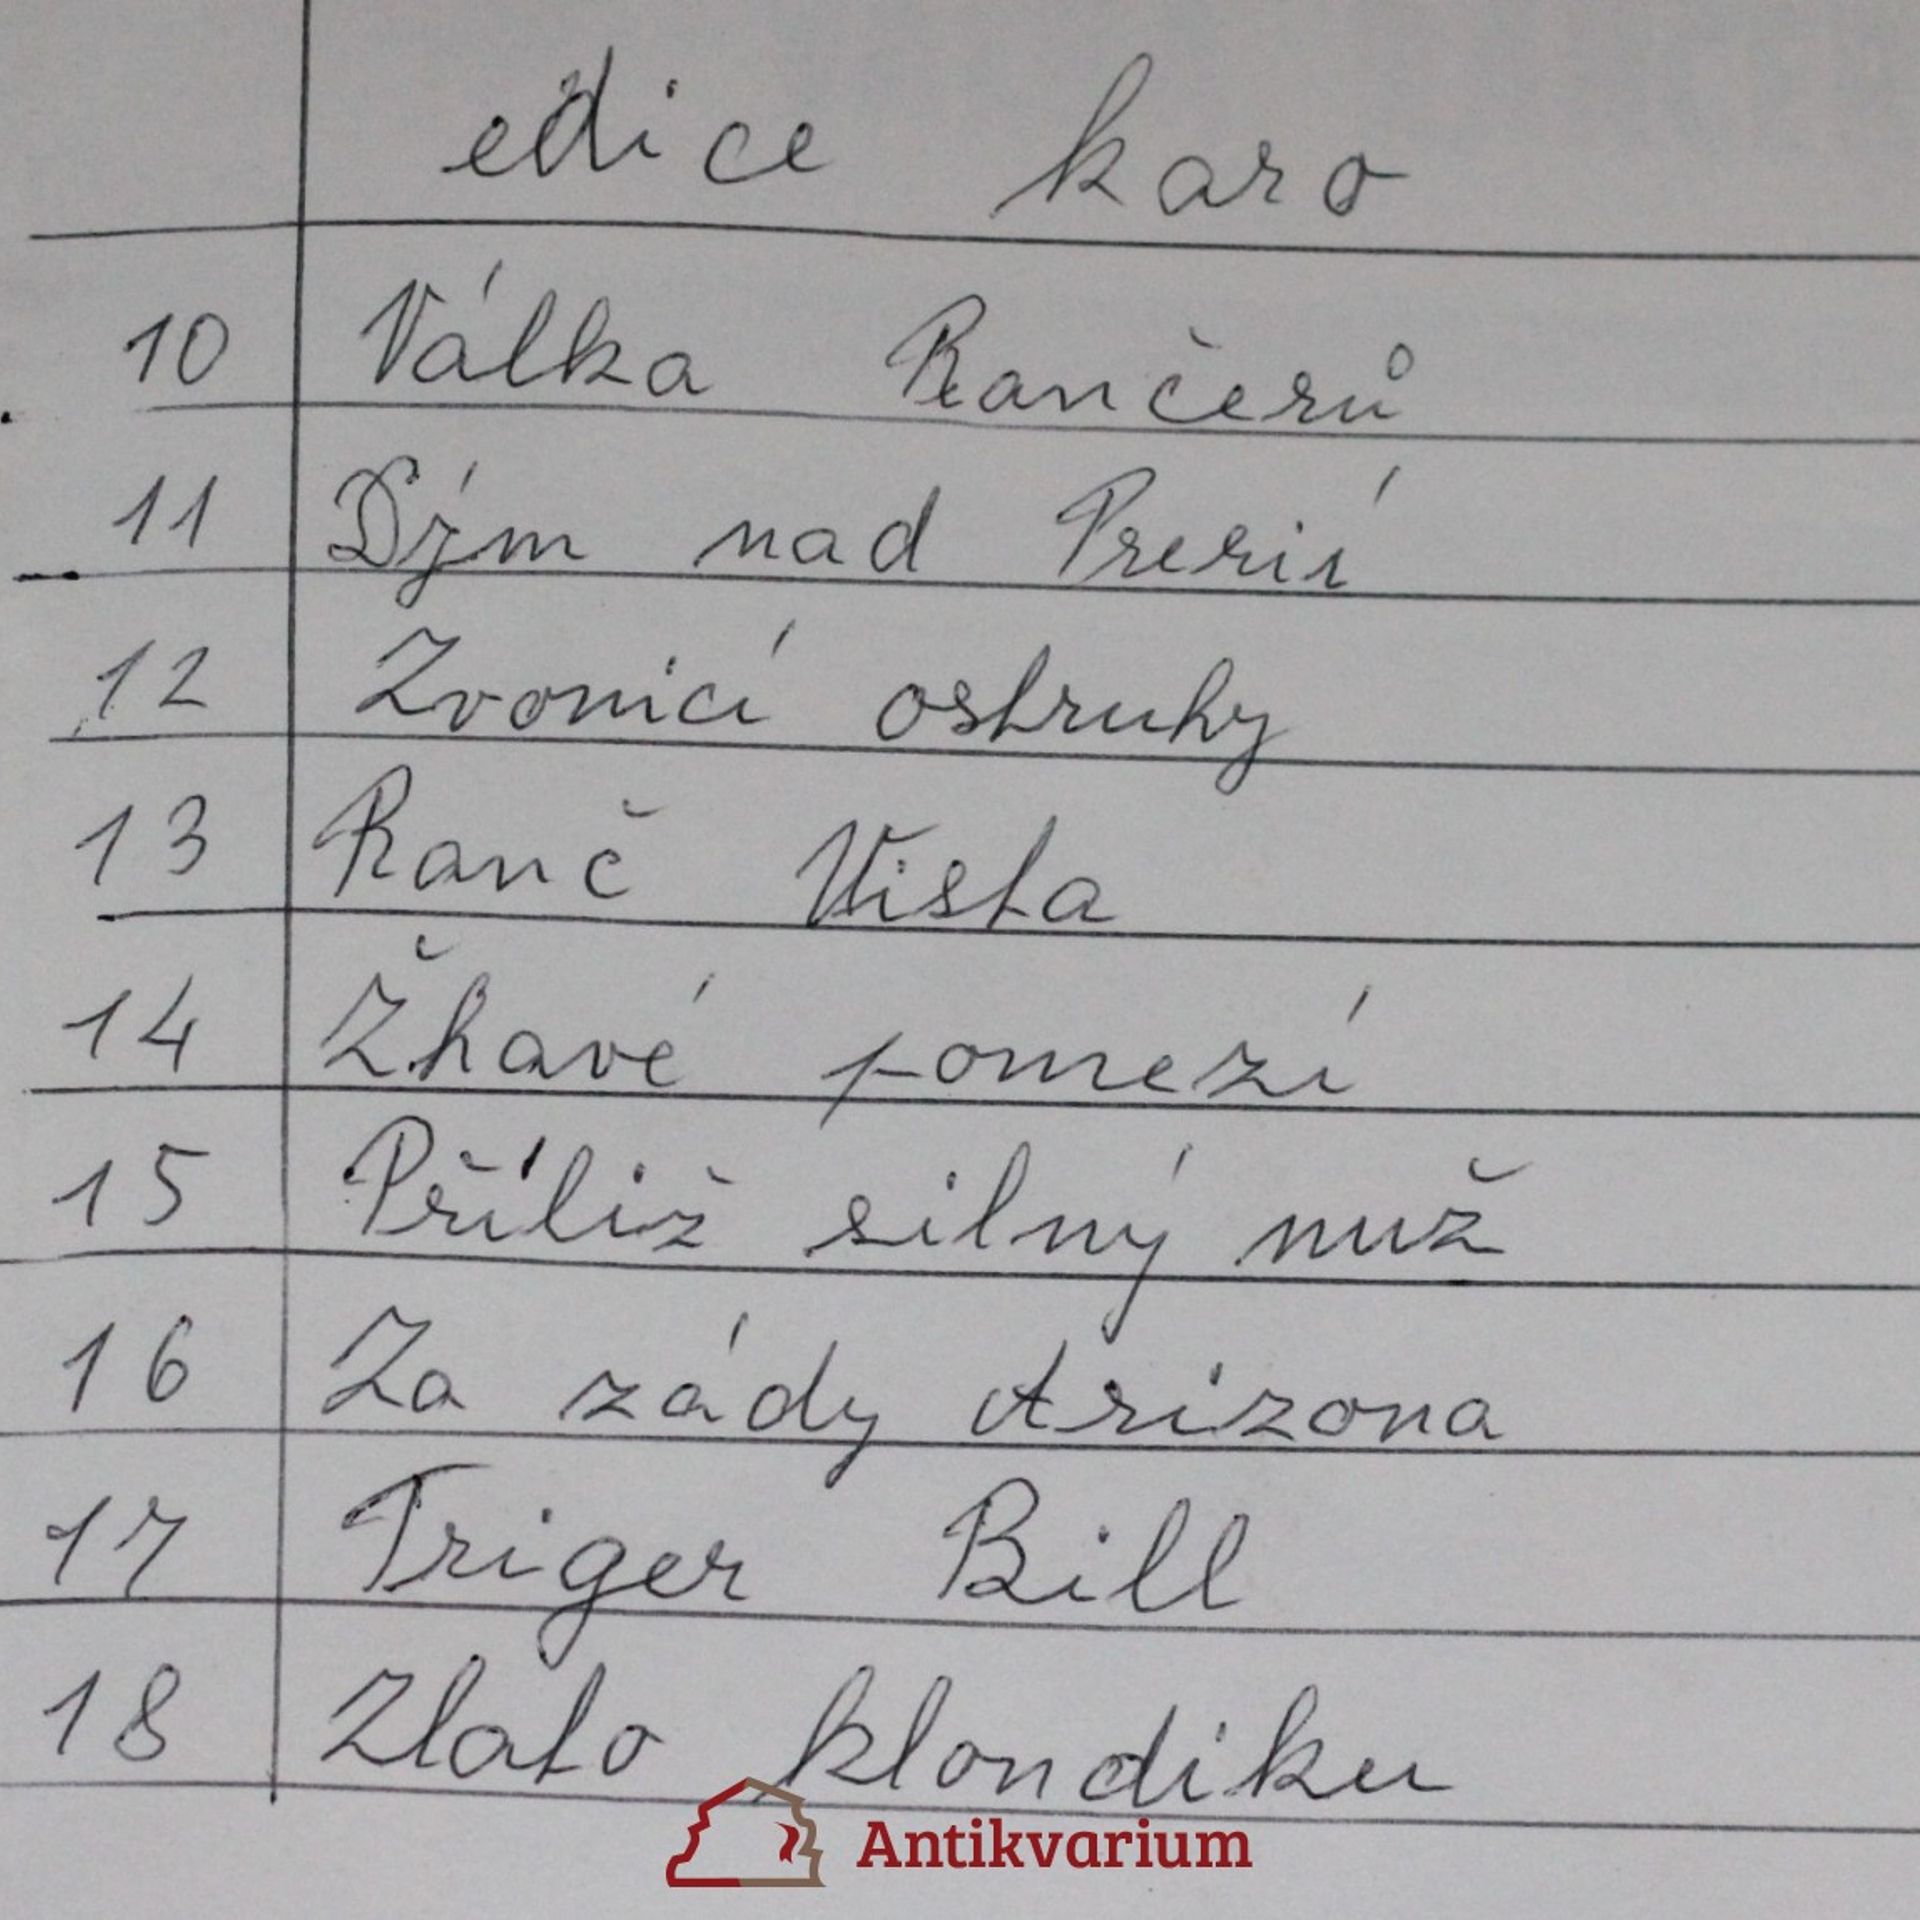 edice karo
10 Válka Rančerů
11 Dým nad Prerií
12 Zvonící ostruhy
13 Ranč Vista
14 Žhavé pomezí
15 Příliž silný muž
16 Za zády Arizona
17 Triger Bill
18 Zlato klondiku
Antikvarium